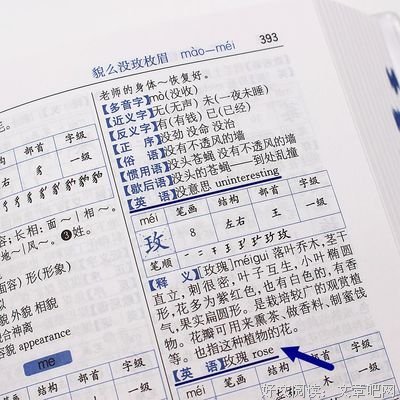 貌么没玫枚眉 mào—méi 393
老师的身体～恢复好。
【多音字】mò(没收)
【近义字】无(无声) 未(一夜未睡)
【反义字】有(有钱) 已(已经)
【正 序】没劲 没命 没治
【俗 语】没有不透风的墙
【惯用语】没头苍蝇 没有不透风的墙
【歇后语】没头的苍蝇——到处乱撞
【英 语】没意思 uninteresting
méi 笔画 结构 部首 字级
玫 8 左右 王 一级
笔顺
【释 义】[玫瑰]méiguī 落叶乔木,茎干
直立,刺很密,叶子互生,小叶椭圆
形,花多为紫红色,也有白色的,有香
气,果实扁圆形。是栽培较广的观赏植
物。花瓣可用来熏茶、做香料、制蜜饯
等。也指这种植物的花。
【英 语】玫瑰 rose
笔画 结构 部首 字级
木 一级
结构 部首 字级
左右 豸 一级
容;长相:面～|相～。
～|风～。❸姓。
面容) 形(形象)
外貌 相貌
合神离
容貌 appearance
me
结构 部首 字级
一级
好文阅读: 文章吧网